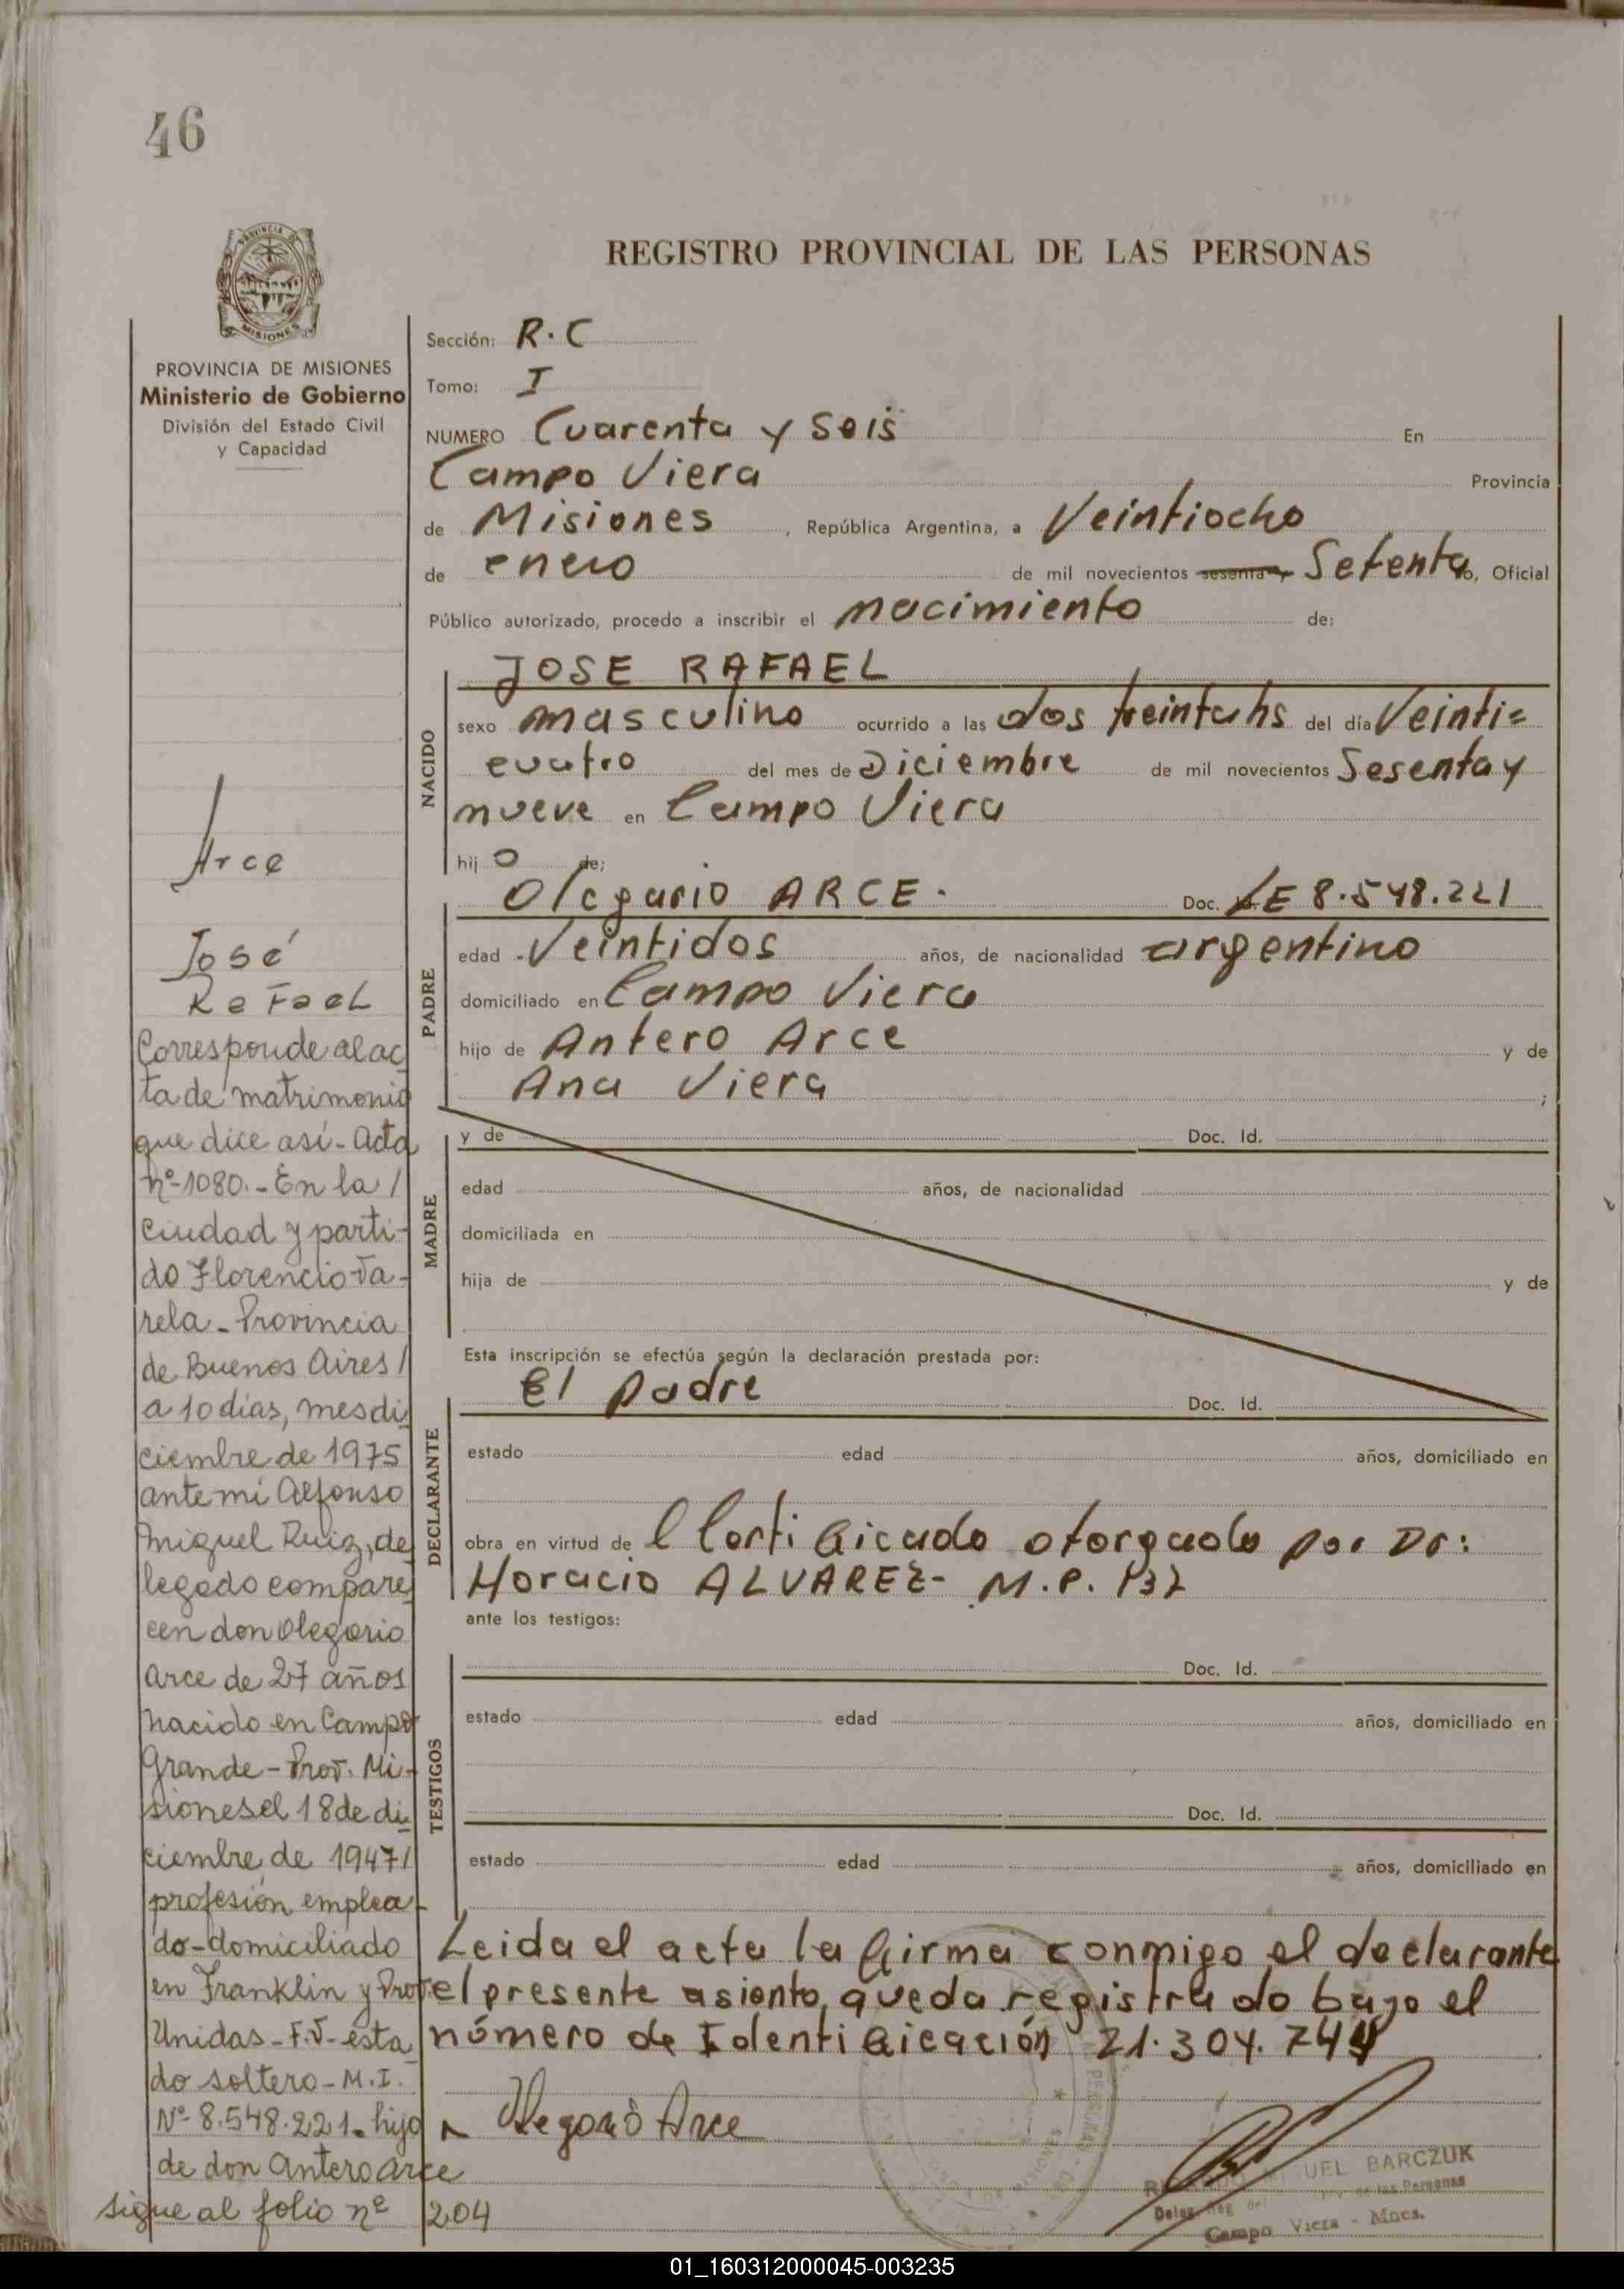 46
PROVINCIA DE
MISIONES
PROVINCIA DE MISIONES
Ministerio de Gobierno
División del Estado Civil
y Capacidad
Arce
José
RaFaeL
Corresponde al ac
ta de matrimonio
que dice así - Acta
nº 1080.- En la /
Ciudad y parti-
do Florencio Va-
rela - Provincia
de Buenos Aires /
a 10 días, mes di
ciembre de 1975
ante mí Alfonso
Miguel Ruiz, de
legado compare
cen don Olegario
Arce de 27 años
nacido en Campo
Grande - Prov. Mi-
siones el 18 de di
ciembre de 1947 /
profesión emplea
do - domiciliado
en Franklin y Prov
Unidas - F.V - esta
do soltero - M.I.
Nº 8.548.221. hijo
de don Antero Arce
sigue al folio nº 204
REGISTRO PROVINCIAL DE LAS PERSONAS
Sección: R.C
Tomo: I
NUMERO Cuarenta y Seis En
Campo Viera Provincia
de Misiones, República Argentina, a Veintiocho
de enero de mil novecientos sesenta y Setenta, Oficial
Público autorizado, procedo a inscribir el nacimiento de:
NACIDO
JOSE RAFAEL
sexo masculino ocurrido a las dos treinta hs del día Veinti=
cuatro del mes de Diciembre de mil novecientos Sesenta y
nueve en Campo Viera
hij o de;
PADRE
Olegario ARCE. Doc. LE 8.548.221
edad Veintidos años, de nacionalidad argentino
domiciliado en Campo Viera
hijo de Antero Arce y de
Ana Viera ;
MADRE
y de Doc. Id.
edad años, de nacionalidad
domiciliada en
hija de y de
Esta inscripción se efectúa según la declaración prestada por:
DECLARANTE
El padre Doc. Id.
estado edad años, domiciliado en
obra en virtud de l Certificado otorgado por Dr:
Horacio ALVAREZ- M.P. 132
ante los testigos:
TESTIGOS
Doc. Id.
estado edad años, domiciliado en
Doc. Id.
estado edad años, domiciliado en
Leida el acta la firma conmigo el declarante
el presente asiento, queda registrado bajo el
número de Identificación 21.304.744
Olegario Arce
UEL BARCZUK
Deleg. Reg. de las Personas
Campo Viera - Mnes.
01_160312000045-003235